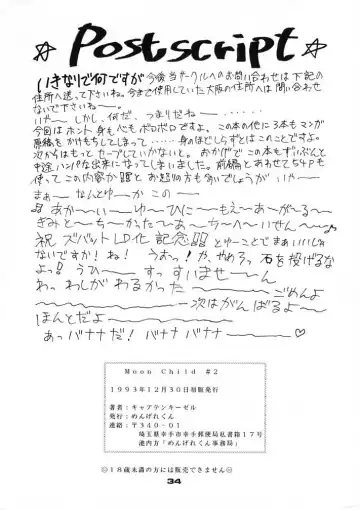 ☆ Postscript ☆
いきなりで何ですが今後当サークルへのお問い合わせは下記の
住所へ送って下さいね。今まで使用していた大阪の住所へは問い合わせ
ないで下さいねー。
いやー しかし、何だ、つまりだねー‥‥‥‥
今回はホント身も心もボロボロですよ。この本の他に3本もマンガ
原稿をかけもちしてしまって‥‥‥身のほどしらずとはこのことですよ。
次からはもっとセーブしていかないと。おかげでこの本もずいぶんと
中途ハンパな出来になってしまいました。前編とあわせて54Pも
使ってこの内容か とお怒りの方も多いでしょうが いやー
まあー なんとゆーか この ー
あかーいーゆーひにーもえーあーがーるー
きみとーちーかったーあーちーへいせんー♪
祝 ズバットLD化記念 とゆーことでまぁいいじゃ
ないですか!ね! うわっ!か、やめろっ 石を投げるな
よっ! うひー すっすいませーん
わっ わしがわるかったー ごめんよ
ー 次はがんばるよー
ほんとだよー
あっバナナだ! バナナ バナナー ♡
Moon Child #2
1993年12月30日初版発行
著者:キャアテンキーゼル
発行:めんげれくん
連絡:〒340-01
埼玉県幸手市幸手郵便局私書箱17号
連内方「めんげれくん事務局」
◎18歳未満の方には販売できません◎
34